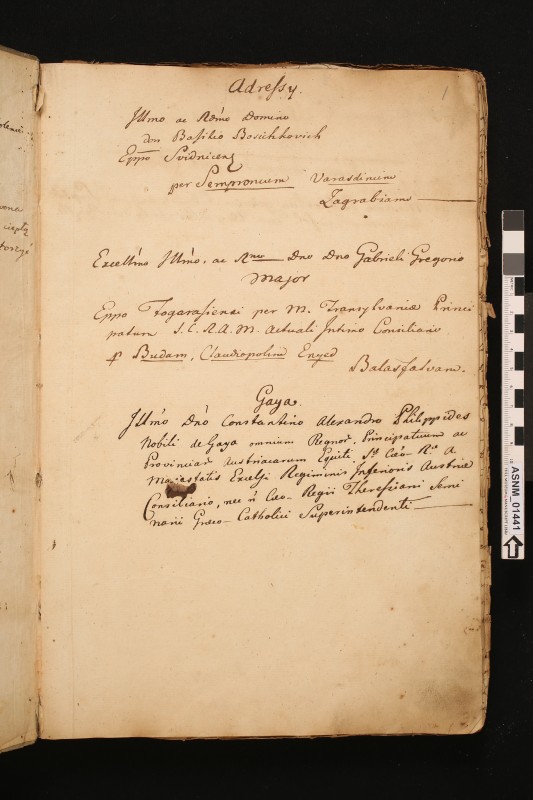 Adressy.
1
Illmo ac Rdmo Domino
don Basilio Bosichkovich
Eppo Svidnicen
per Sempronium Varasdinum
Zagrabiam
Excellmo Illmo, ac Rmo Dno Dno Gabrieli Gregorio
Major
Eppo Fogarasiensi per M. Transylvaniæ Princi
patum S.C.R.A.M. Actuali Intimo Consiliario
Budam, Claudiopolim Enyed
Balasfalvam.
Gaya.
Illmo Dno Constantino Alexandro Philippides
Nobili de Gaya omnium Regnor. Principatuum ac
Provinciar Austriacarum Equiti. Cæo Ræ A
Majestatis Excelsi Regiminis Inferioris Austriæ
Consiliario, nec n Cæo-Regii Theressiani Semi
narii Græco-Catholici Superintendenti
ASNM_01441